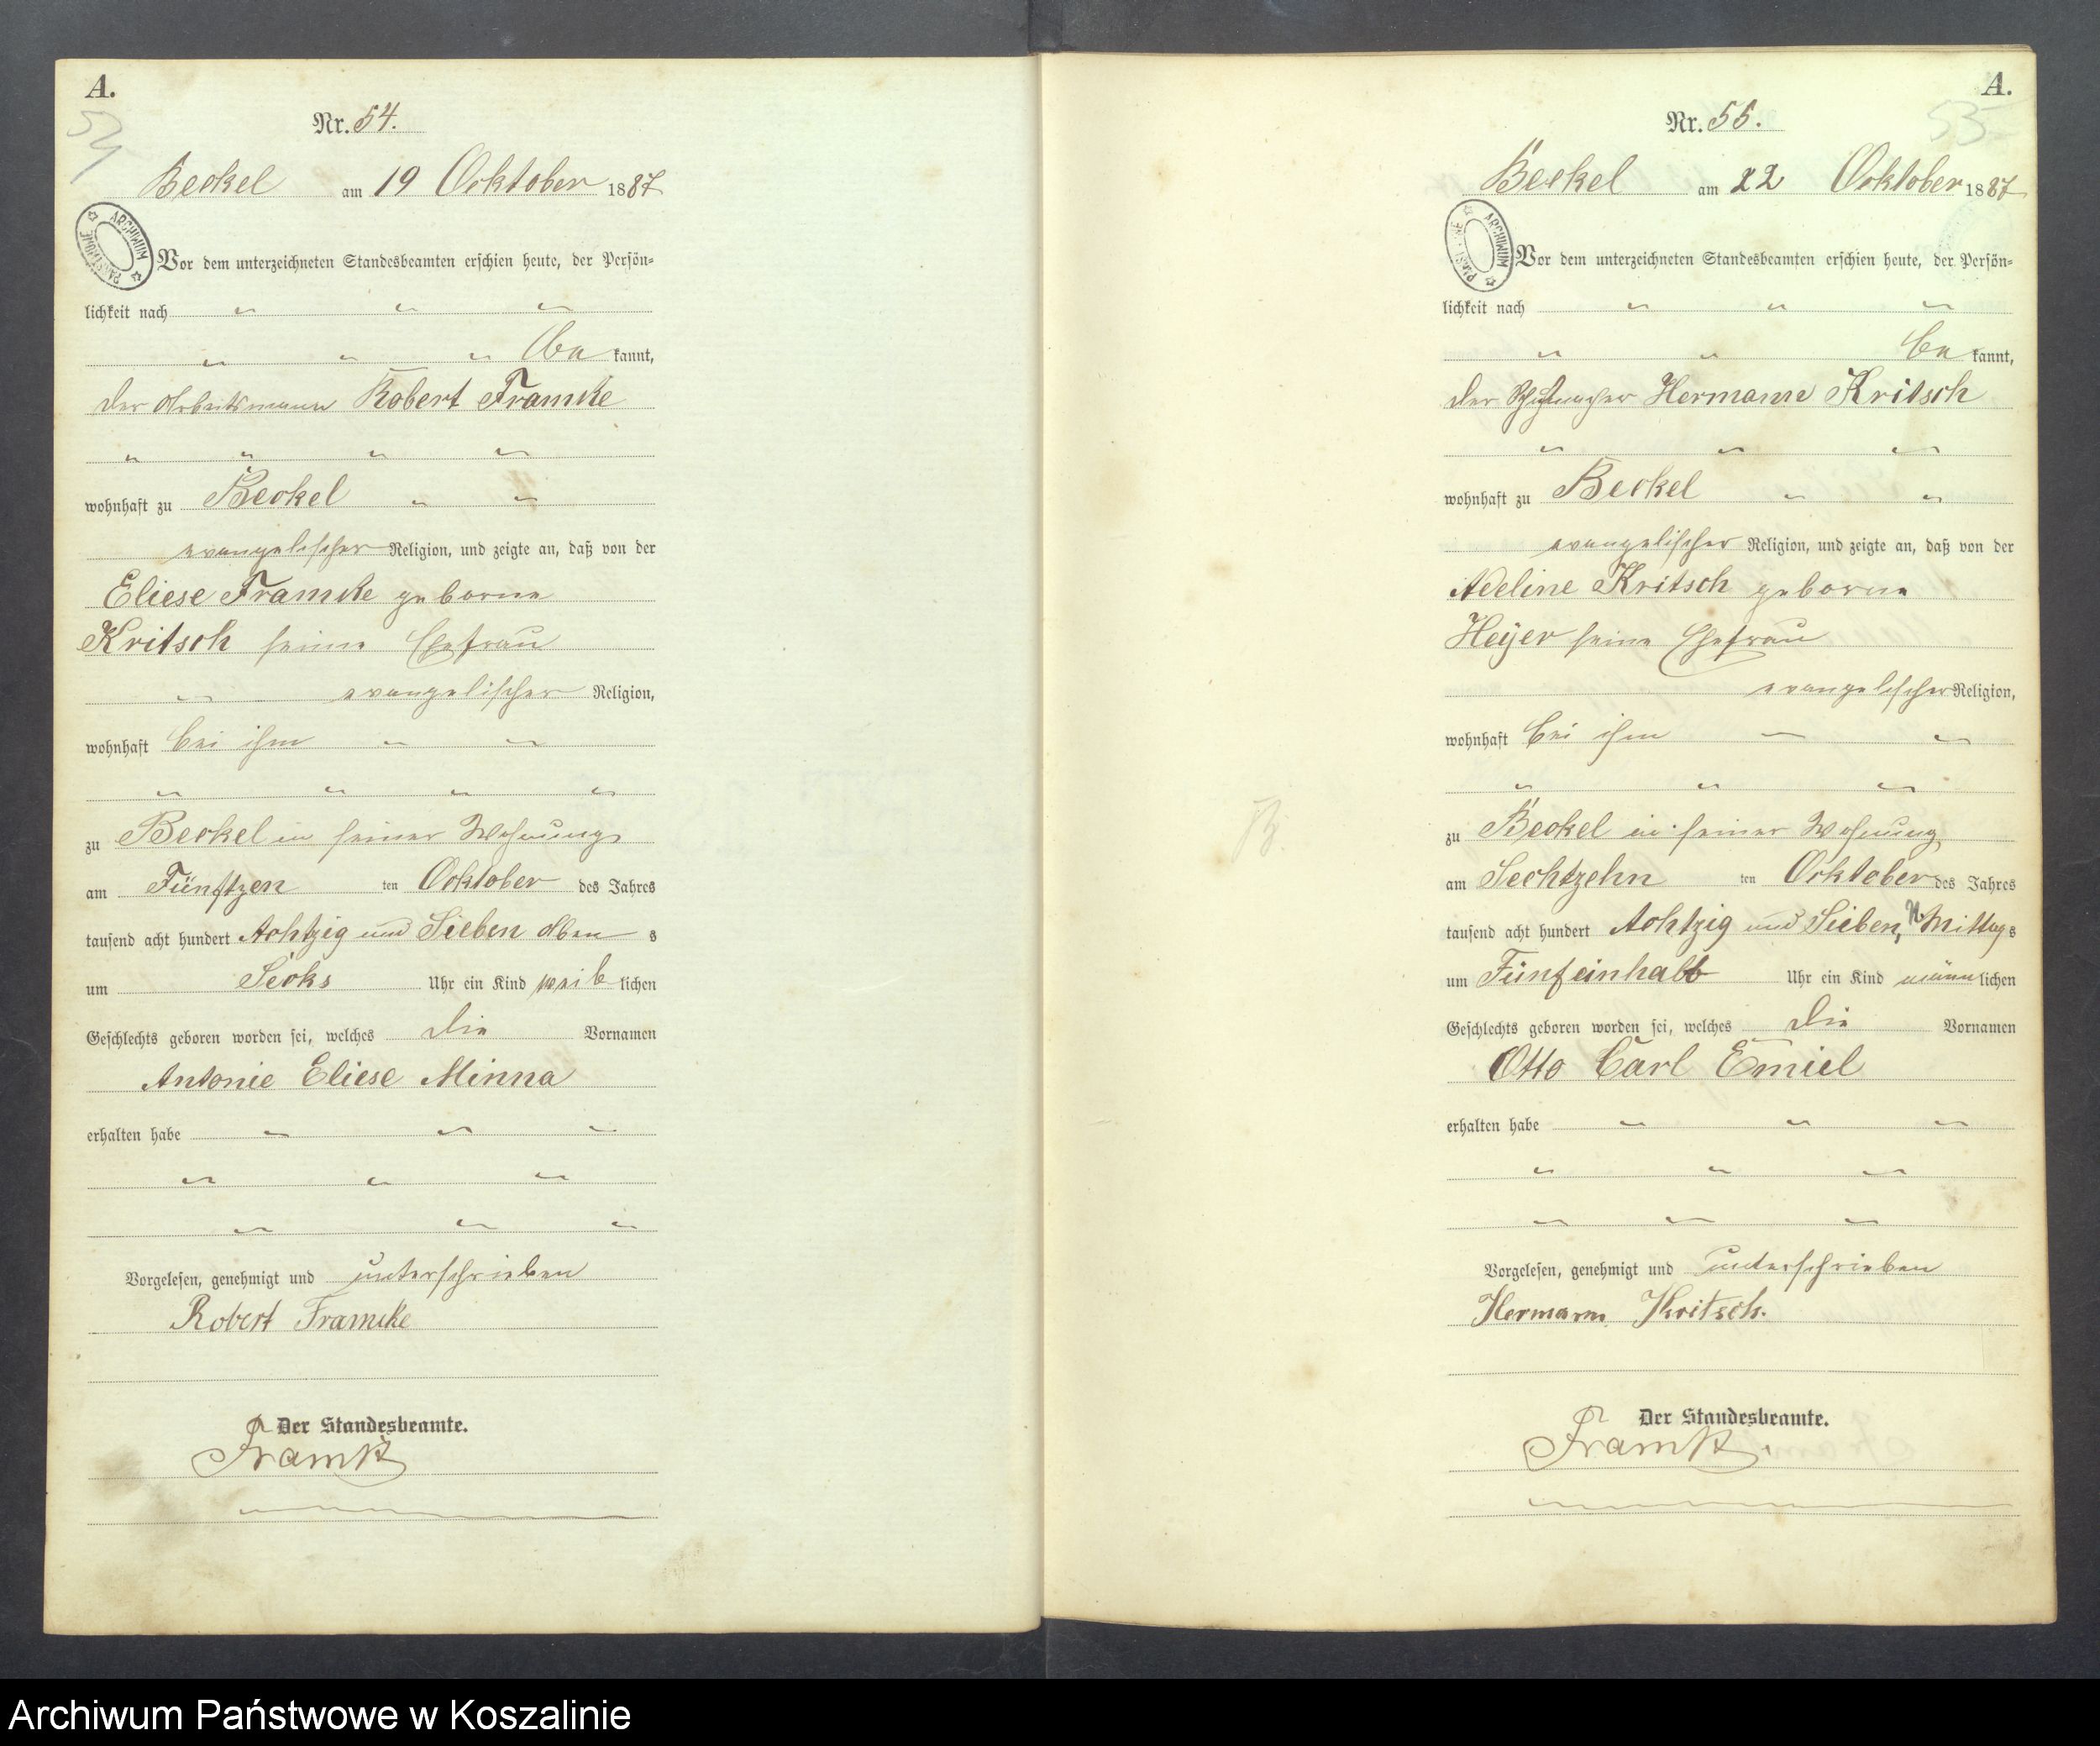 A.
54
Nr. 54.
Beckel am 19 Ocktober 1887
ARCHIWUM PAŃSTWOWE
Vor dem unterzeichneten Standesbeamten erschien heute, der Persön-
lichkeit nach
be kannt,
der Arbeitsmann Robert Framcke
wohnhaft zu Beckel
evangelischer Religion, und zeigte an, daß von der
Eliese Framcke geborne
Kritsch seine Ehefrau
evangelischer Religion,
wohnhaft bei ihm
zu Beckel in seiner Wohnung
am Fünftzen ten Ocktober des Jahres
tausend acht hundert Achtzig und Sieben Aben s
um Secks Uhr ein Kind weib lichen
Geschlechts geboren worden sei, welches die Vornamen
Antonie Eliese Minna
erhalten habe
Vorgelesen, genehmigt und unterschrieben
Robert Framcke
Der Standesbeamte.
A.
55
Nr. 55.
Beckel am 22 Ocktober 1887
ARCHIWUM
Vor dem unterzeichneten Standesbeamten erschien heute, der Persön-
lichkeit nach
be kannt,
der Schumacher Hermann Kritsch
wohnhaft zu Beckel
evangelischer Religion, und zeigte an, daß von der
Adeline Kritsch geborne
Heyer seine Ehefrau
evangelischer Religion,
wohnhaft bei ihm
zu Beckel in seiner Wohnung
am Sechtzehn ten Ocktober des Jahres
tausend acht hundert Achtzig und Sieben, N Mittag s
um Fünfeinhalb Uhr ein Kind männ lichen
Geschlechts geboren worden sei, welches die Vornamen
Otto Carl Emiel
erhalten habe
Vorgelesen, genehmigt und unterschrieben
Hermann Kritsch.
Der Standesbeamte.
Archiwum Państwowe w Koszalinie